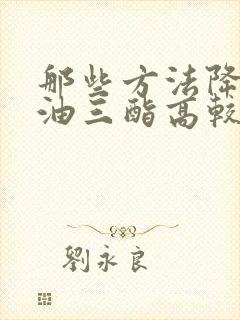 那些方法降
油三酯高较
劉永良